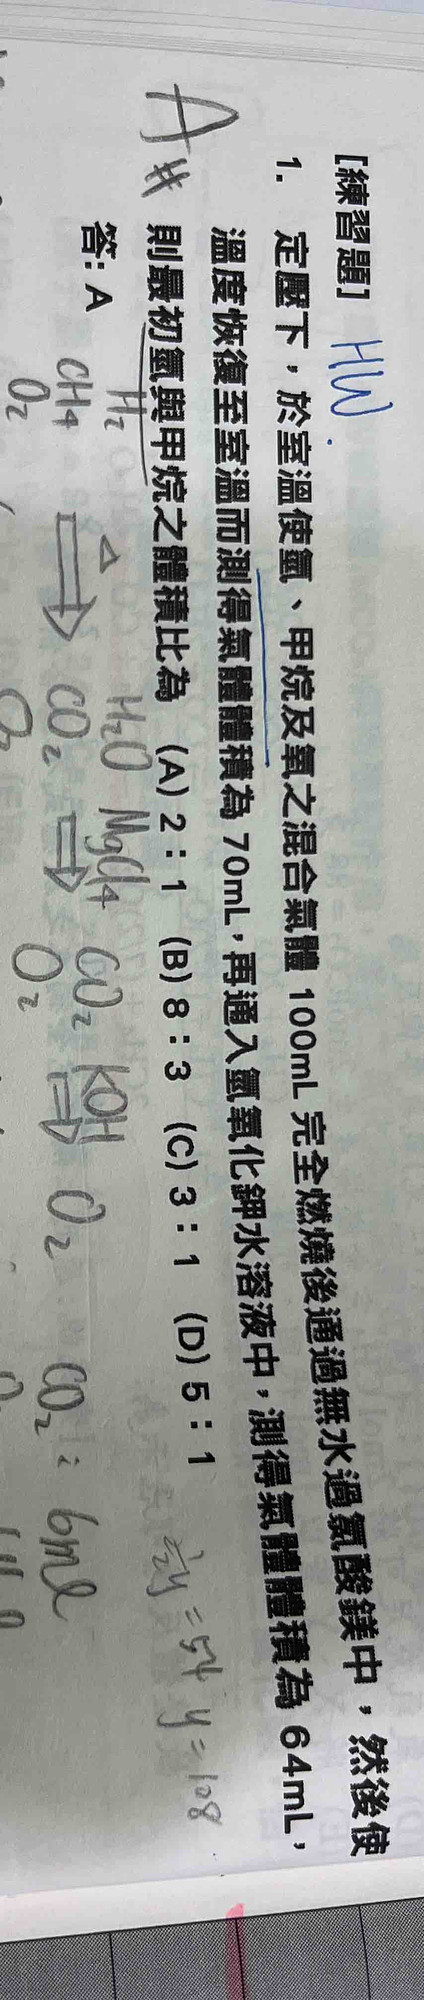 [練習題] HW.
1. 定壓下，於室溫使氫、甲烷及氧之混合氣體 100mL 完全燃燒後通過無水過氯酸鎂中，然後使
溫度恢復至室溫而測得氣體體積為 70mL，再通入氫氧化鉀水溶液中，測得氣體體積為 64mL，
則最初氫與甲烷之體積比為 (A) 2：1 (B) 8：3 (C) 3：1 (D) 5：1
A #
答: A
½y = 54 y = 108
H₂ △ H₂O MgCl4 CO₂ KOH
CH4 ⇒ CO₂ ⇒ O₂ ⇒ O₂ CO₂ : 6ml
O₂ O₂